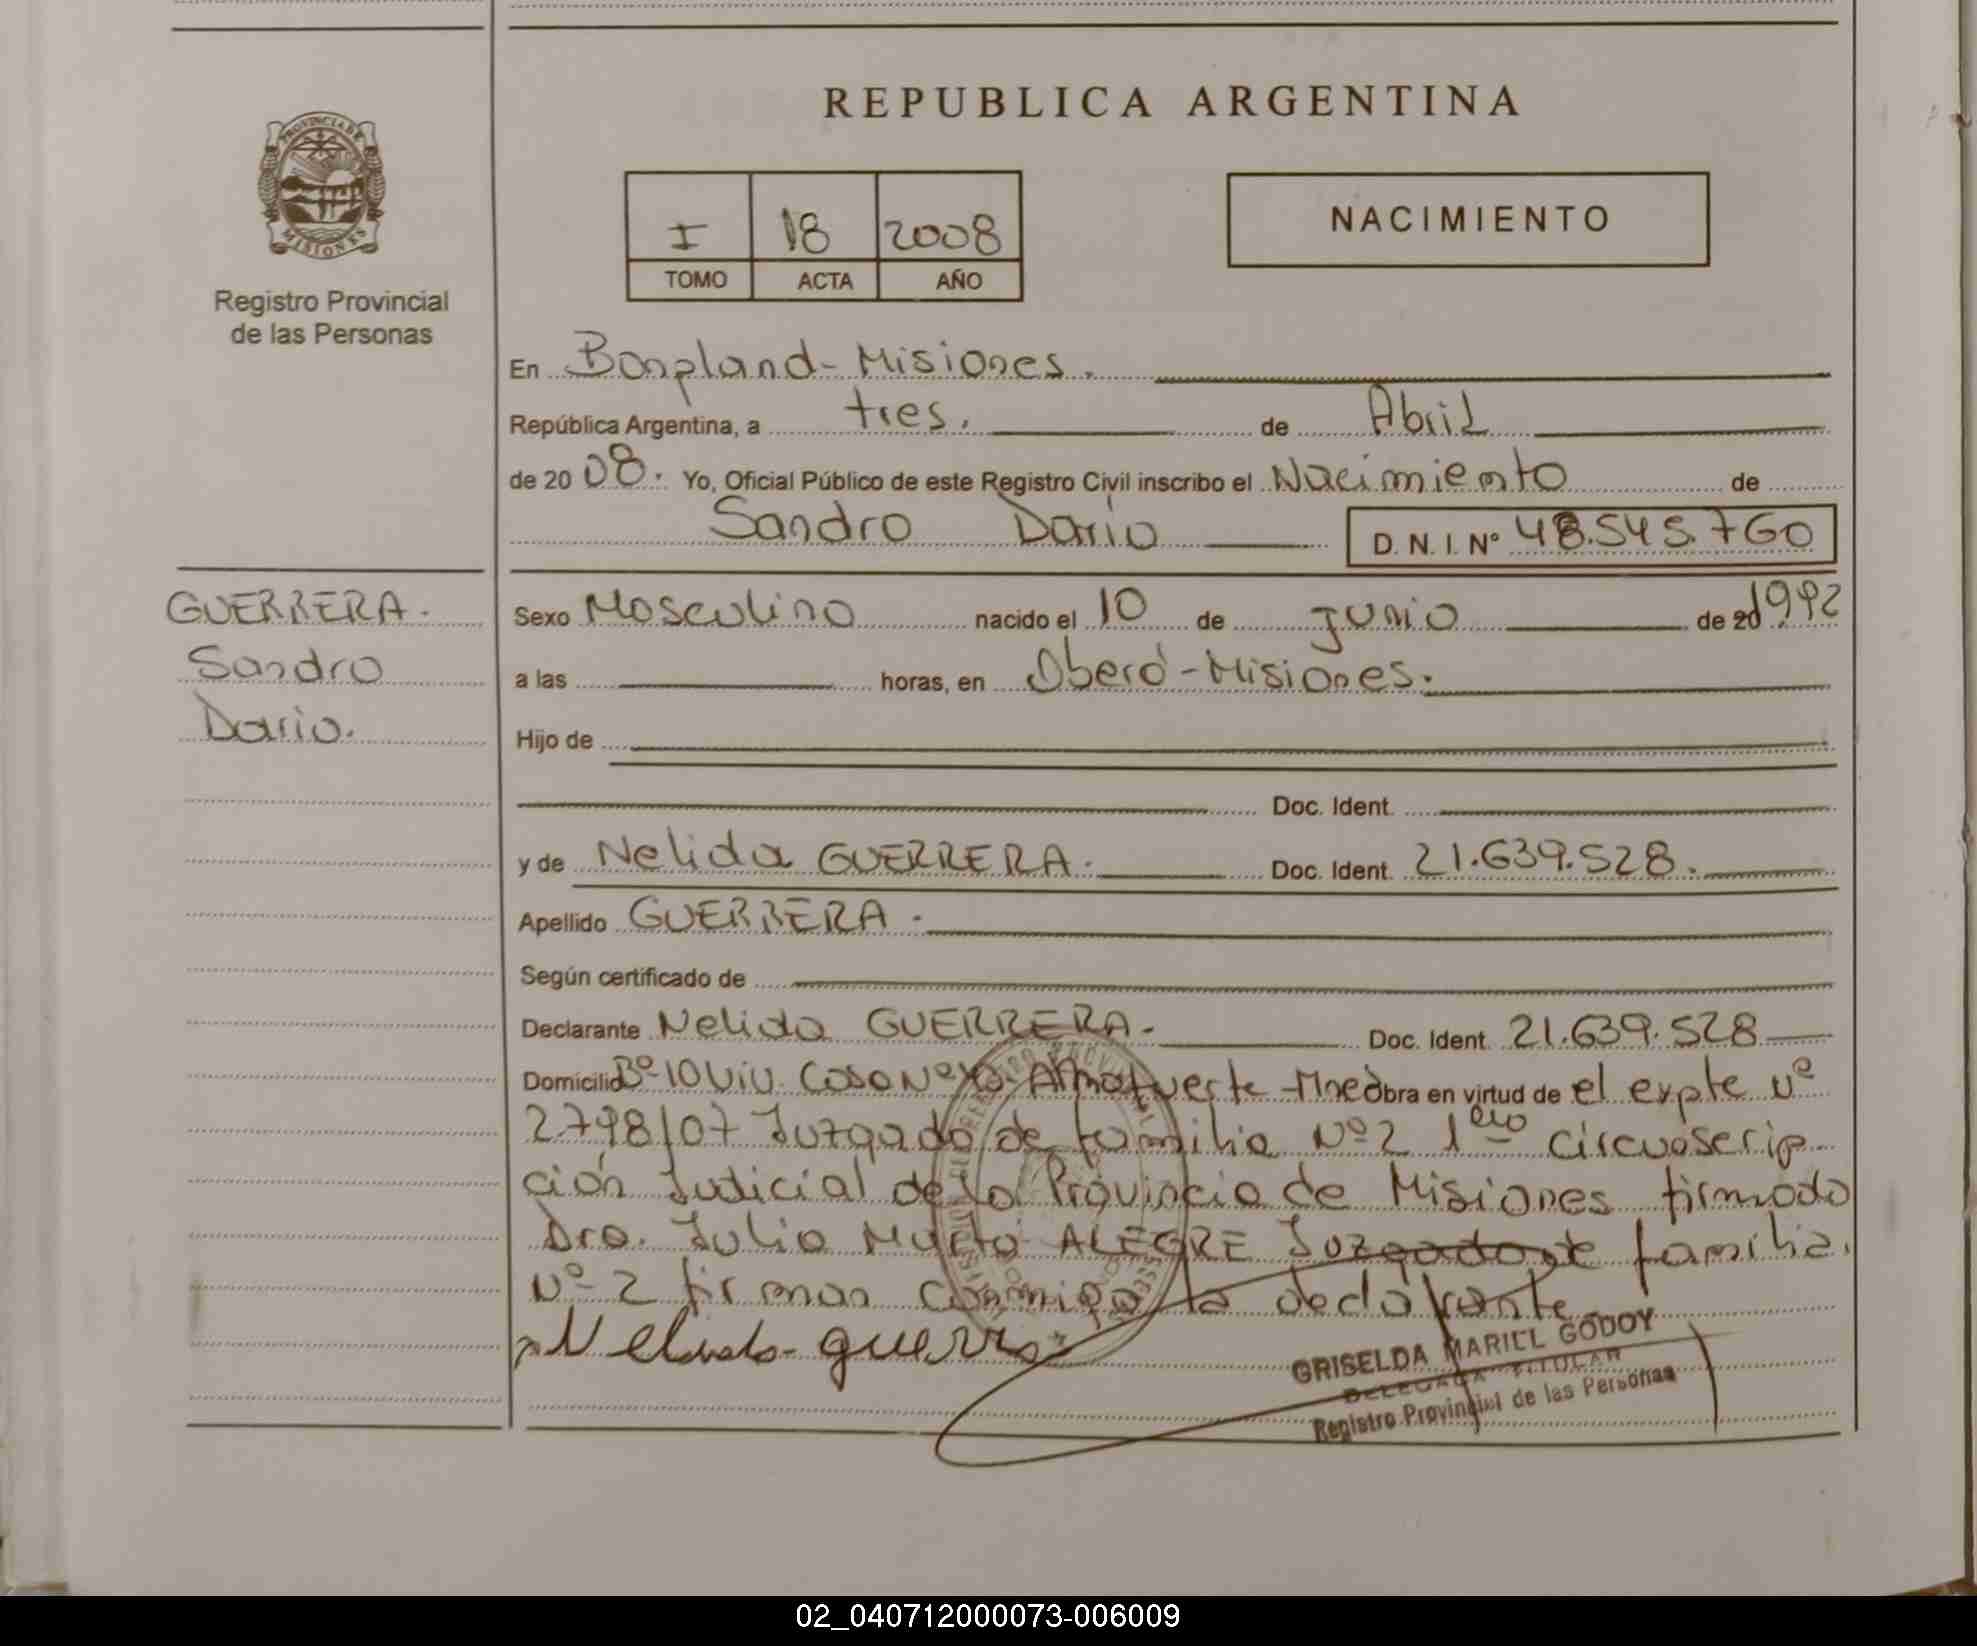 REPUBLICA ARGENTINA
PROVINCIA DE
MISIONES
Registro Provincial
de las Personas
I 18 2008
TOMO ACTA AÑO
NACIMIENTO
En Bonpland-Misiones.
República Argentina, a tres. de Abril
de 20 08. Yo, Oficial Público de este Registro Civil inscribo el Nacimiento de
Sandro Dario D. N. I. Nº 48.545.760
GUERRERA.
Sandro
Dario.
Sexo Masculino nacido el 10 de junio de 20 1992
a las horas, en Oberá-Misiones.
Hijo de
Doc. Ident.
y de Nelida GUERRERA. Doc. Ident. 21.639.528.
Apellido GUERRERA.
Según certificado de
Declarante Nelida GUERRERA. Doc. Ident. 21.639.528
Domicilio Bº 10 Viv. Casa Nº Almafuerte - Mnes Obra en virtud de el expte Nº
2798/07 Juzgado de familia Nº 2 1era circunscrip
ción Judicial de la Provincia de Misiones firmado
Dra. Julia ALEGRE Juzgado de familia.
Nº 2 firman conmigo la declarante
Nelida guerrera
GRISELDA MARIEL GODOY
DELEGADA TITULAR
Registro Provincial de las Personas
02_040712000073-006009